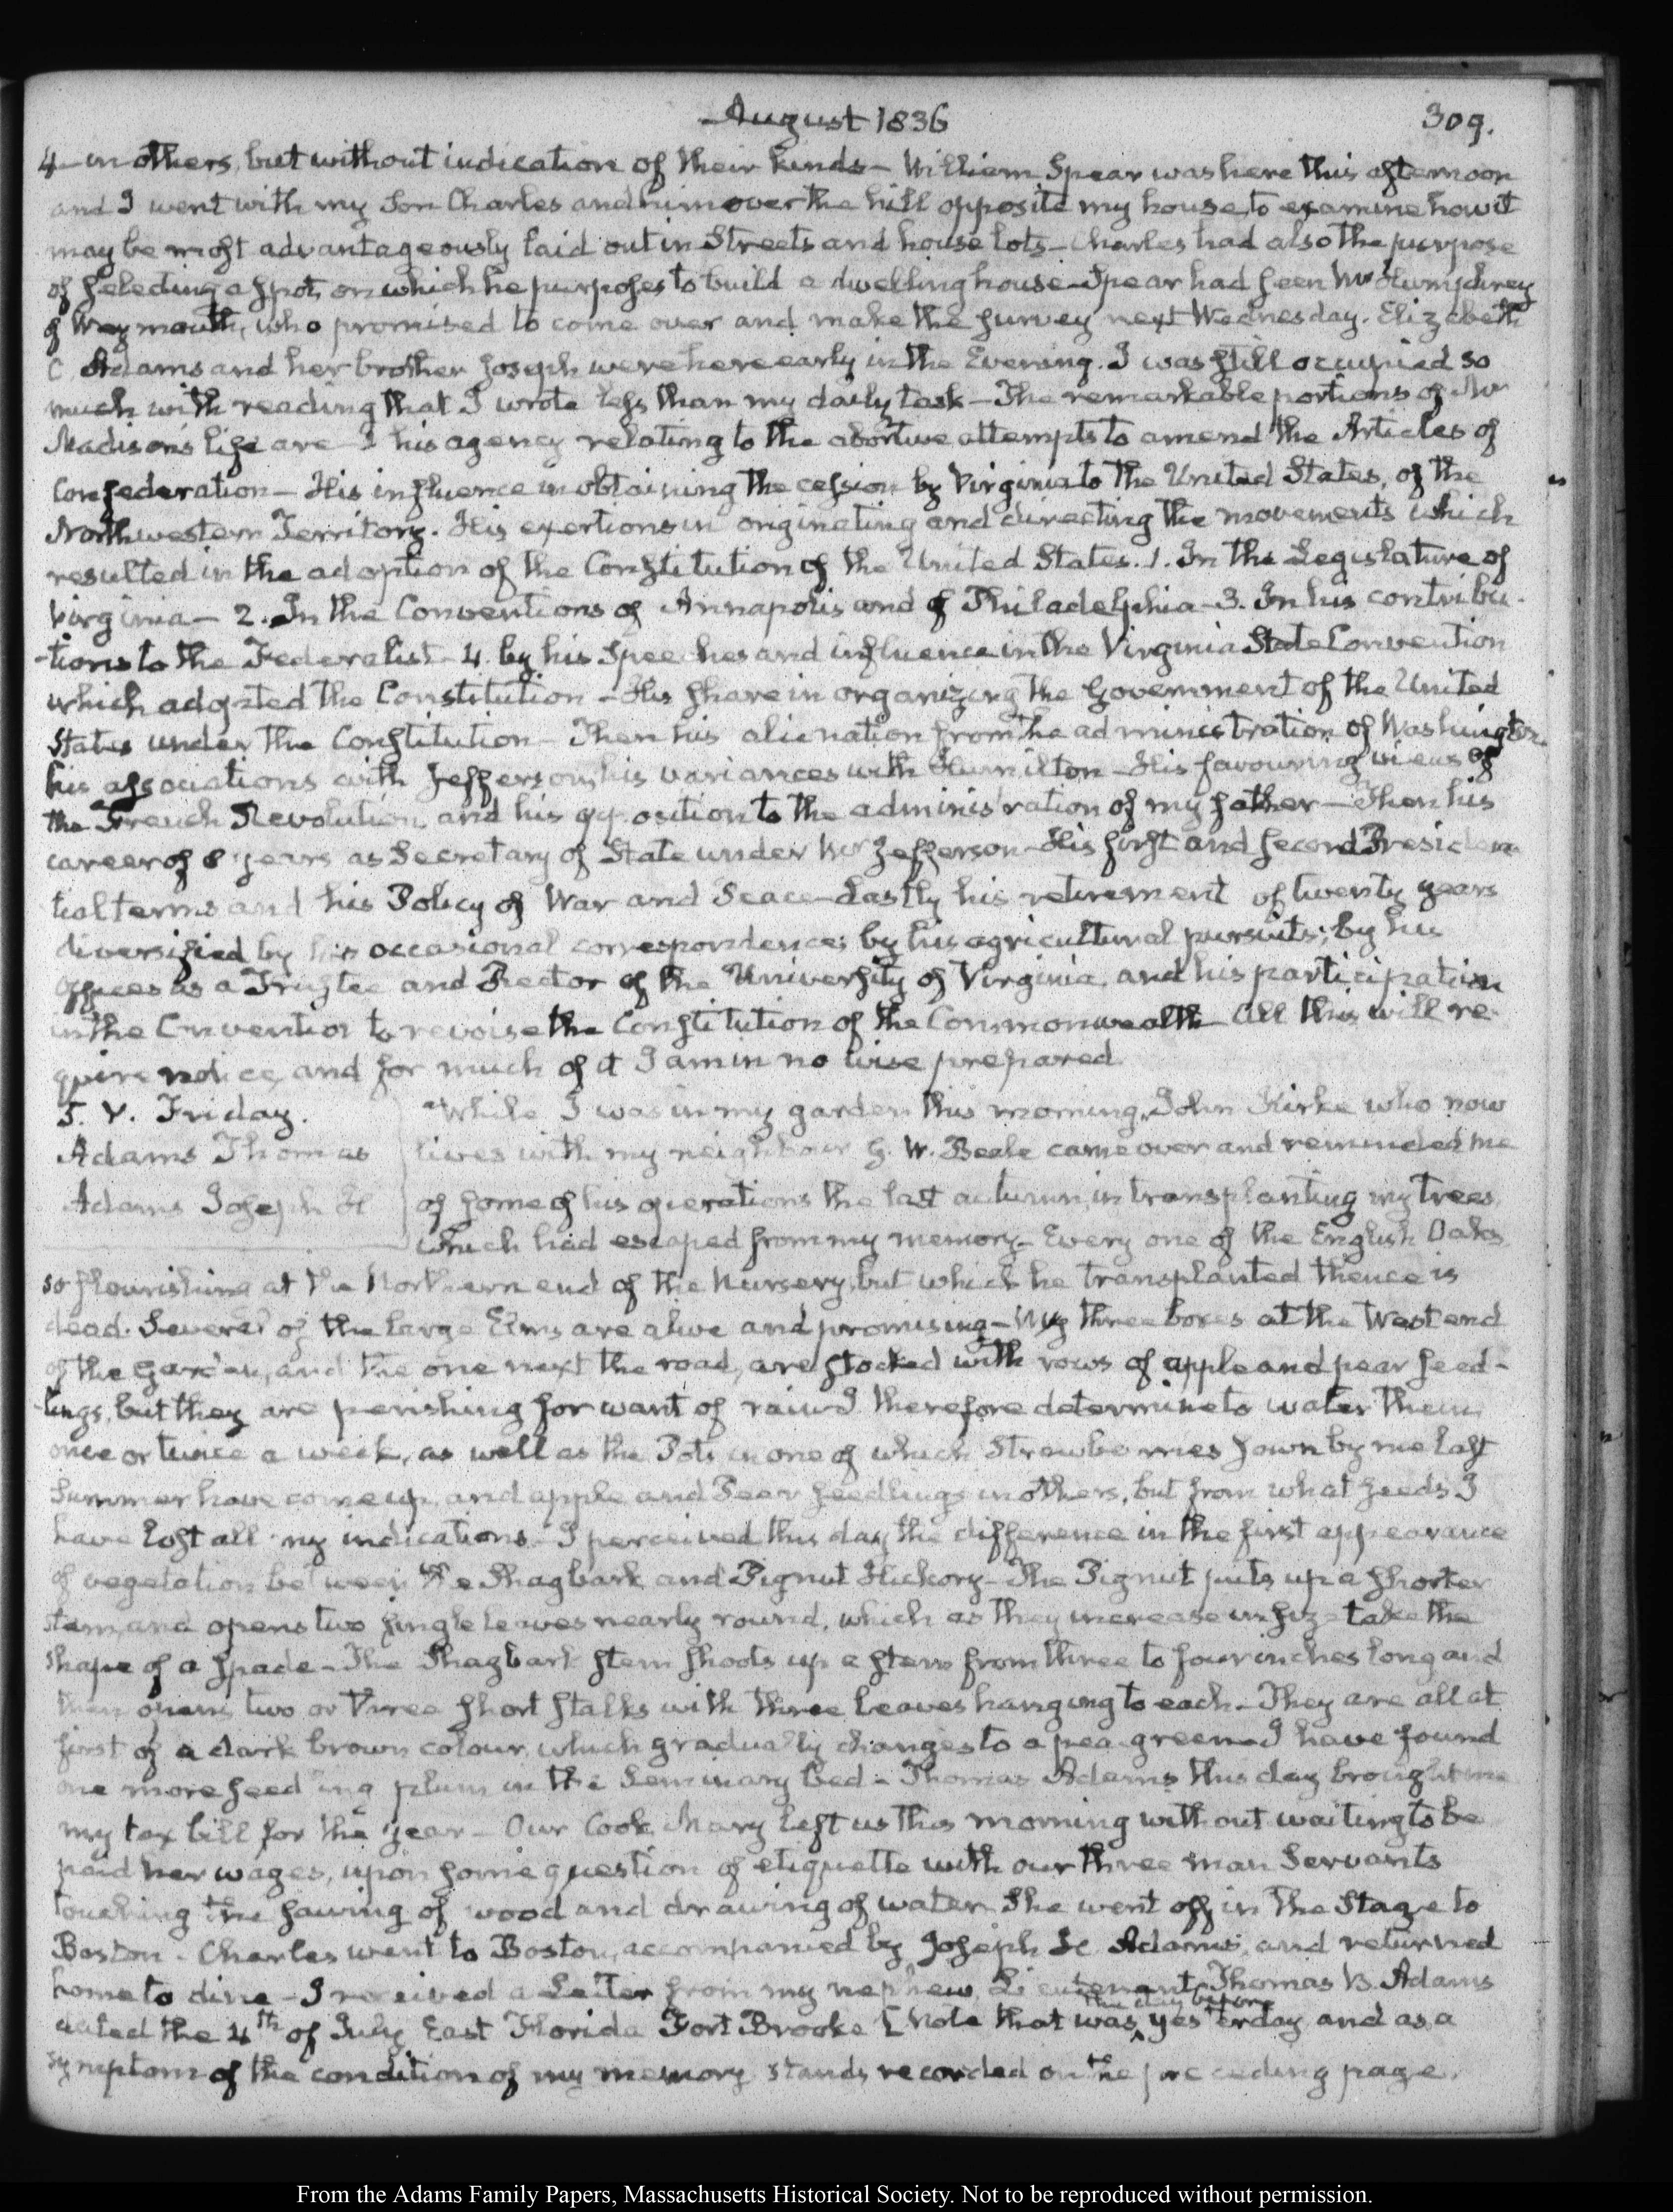 August 1836
309.
4 in others, but without indication of their kinds — William Spear was here this afternoon
and I went with my Son Charles and him over the hill opposite my house, to examine how it
may be most advantageously laid out in Streets and house lots — Charles had also the purpose
of selecting a spot, on which he purposes to build a dwelling house — Spear had seen Mr Humphrey
of Weymouth, who promised to come over and make the survey next Wednesday. Elizabeth
C. Adams and her brother Joseph were here early in the Evening. I was still occupied so
much with reading that I wrote less than my daily task — The remarkable portions of Mr
Madison's life are his agency relating to the abortive attempts to amend the Articles of
Confederation — His influence in obtaining the cession by Virginia to the United States, of the
Northwestern Territory. His exertions in originating and directing the movements which
resulted in the adoption of the Constitution of the United States. 1. In the Legislature of
Virginia — 2. In the Conventions of Annapolis and of Philadelphia — 3. In his contribu-
-tions to the Federalist — 4. by his Speeches and influence in the Virginia State Convention
which adopted the Constitution — His share in organizing the Government of the United
States under the Constitution — Then his alienation from the administration of Washington
his associations with Jefferson, his variances with Hamilton — His favouring views of
the French Revolution, and his opposition to the administration of my father — Then his
career of 8 years as Secretary of State under Mr Jefferson — His first and second Presiden-
tial terms and his Policy of War and Peace — Lastly his retirement of twenty years
diversified by his occasional correspondence; by his agricultural pursuits; by his
offices as a Trustee and Rector of the University of Virginia, and his participation
in the Convention to revoise the Constitution of the Commonwealth — All this will re-
quire notice, and for much of it I am in no wise prepared.
5. V. Friday.
Adams Thomas
Adams Joseph H
While I was in my garden this morning, John Kirke who now
lives with my neighbour G. W. Beale came over and reminded me
of some of his operations the last autumn, in transplanting my trees,
which had escaped from my memory — Every one of the English Oaks
so flourishing at the Northern end of the Nursery, but which he transplanted thence is
dead. Several of the large Elms are alive and promising — My three boxes at the West end
of the Garden, and the one next the road, are stocked with rows of apple and pear seed-
-lings, but they are perishing for want of rain. I therefore determine to water them
once or twice a week, as well as the Pots in one of which Strawberries sown by me last
Summer have come up, and apple and Pear seedlings in others, but from what seeds I
have lost all my indications — I perceived this day the difference in the first appearance
of vegetation between the Shagbark and Pignut Hickory — The Pignut puts up a shorter
stem, and opens two single leaves nearly round, which as they increase in size take the
shape of a spade — The Shagbark stem shoots up a stem from three to four inches long and
then opens two or three short stalks with three leaves hanging to each — They are all at
first of a dark brown colour, which gradually changes to a pea-green — I have found
one more seedling plum in the Seminary bed — Thomas Adams this day brought me
my tax bill for the year — Our Cook Mary left us this morning without waiting to be
paid her wages, upon some question of etiquette with our three man Servants
touching the sawing of wood and drawing of water. She went off in the Stage to
Boston. Charles went to Boston, accompanied by Joseph H. Adams, and returned
home to dine — I received a Letter from my nephew, Lieutenant Thomas B. Adams
dated the 4th of July East Florida Fort Brooke [Note that was the day before yesterday, and as a
symptom of the condition of my memory stands recorded on the preceding page.
From the Adams Family Papers, Massachusetts Historical Society. Not to be reproduced without permission.